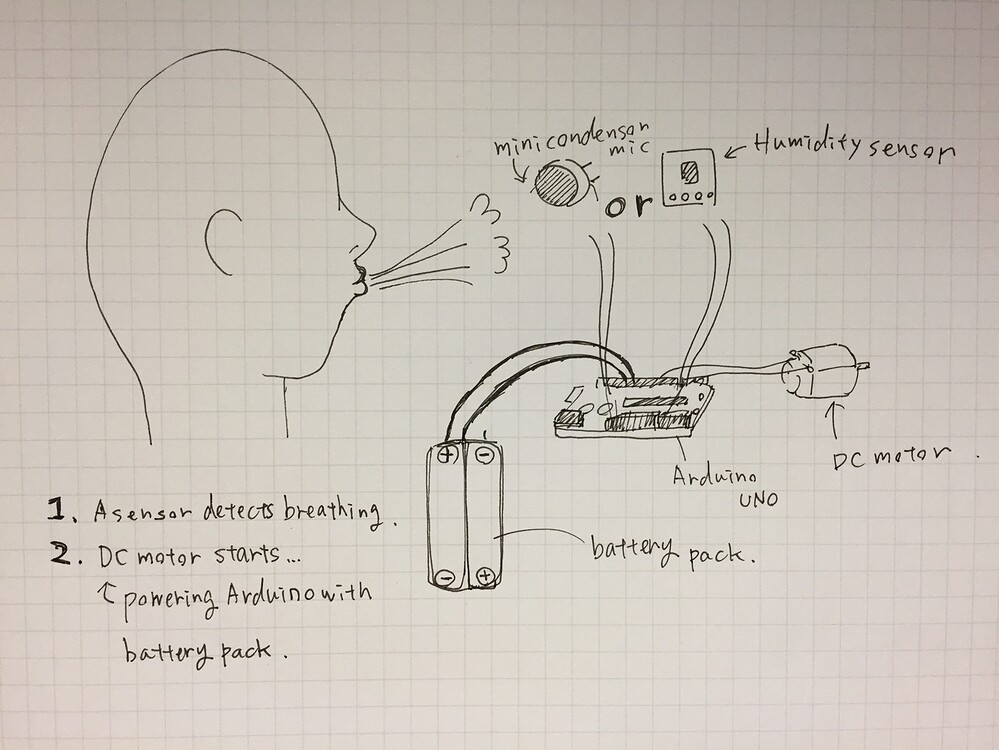 mini condensor
mic
or
Humidity sensor
DC motor.
Arduino
UNO
+ -
- +
battery pack.
1. A sensor detects breathing.
2. DC motor starts...
powering Arduino with
battery pack.